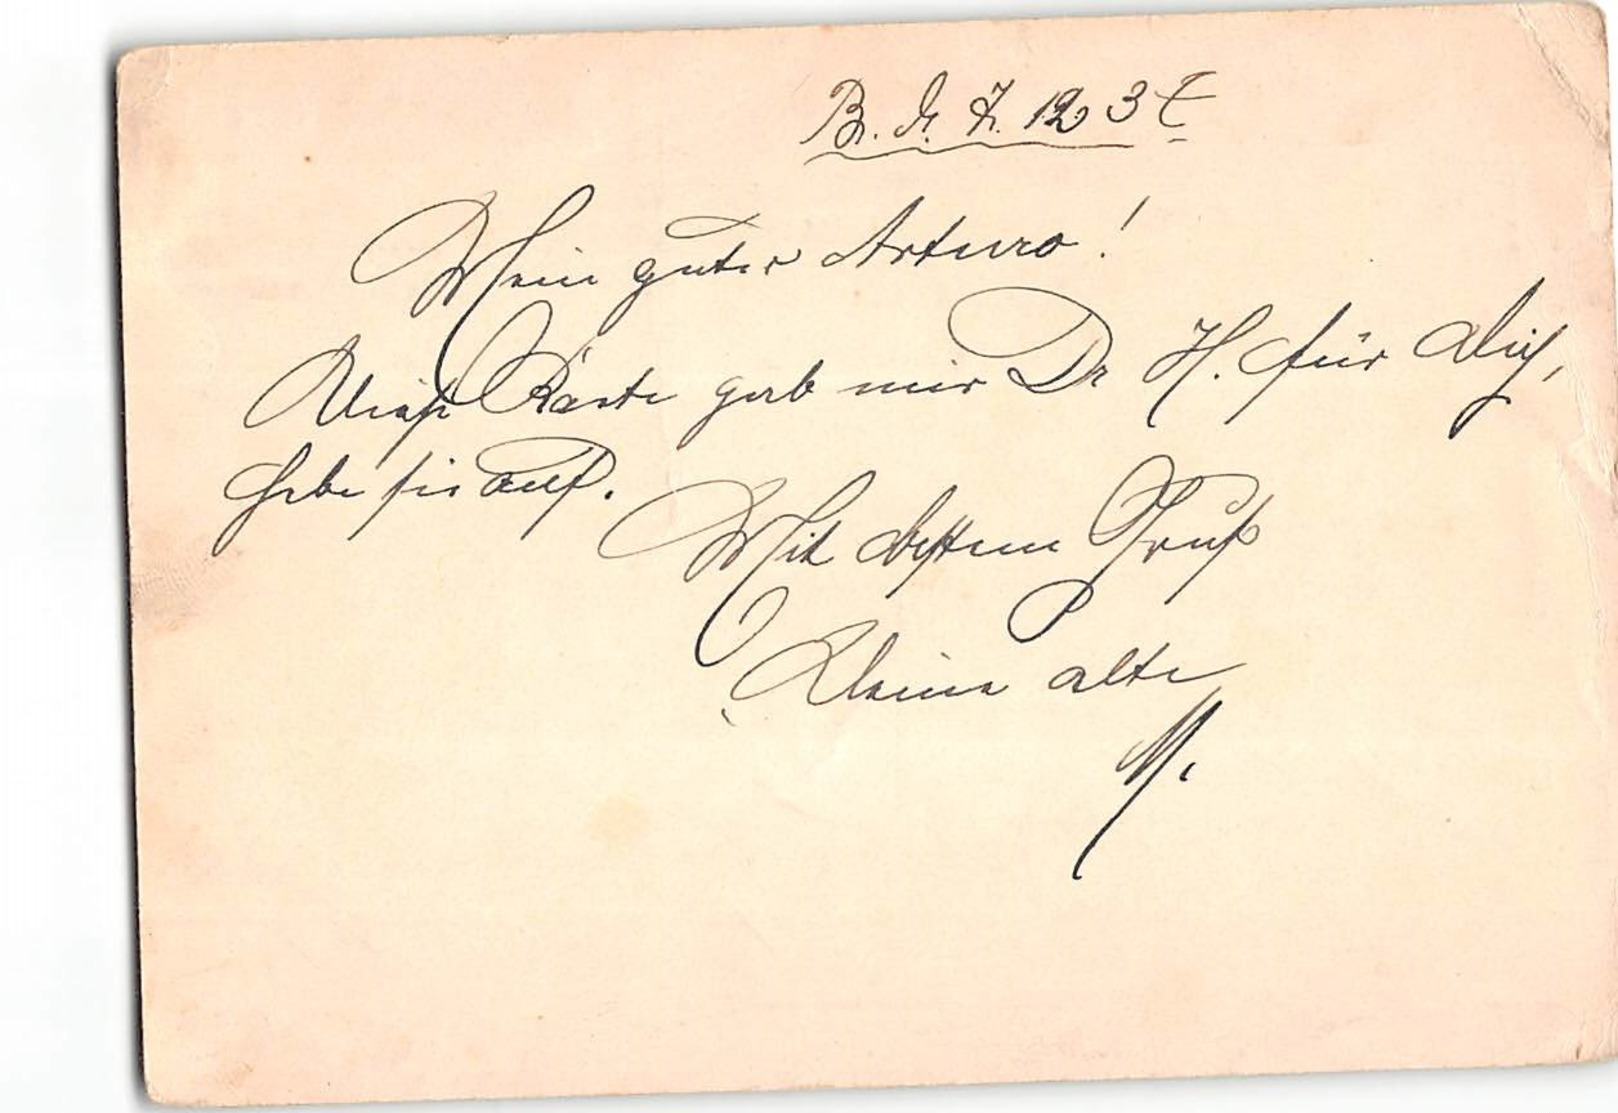 Br. d. 7. 12 37
Mein guter Arturo!
Diese Karte gab mir Dr H. für Dich,
hebe sie auf.
Mit bestem Gruß
Deine alte
M.